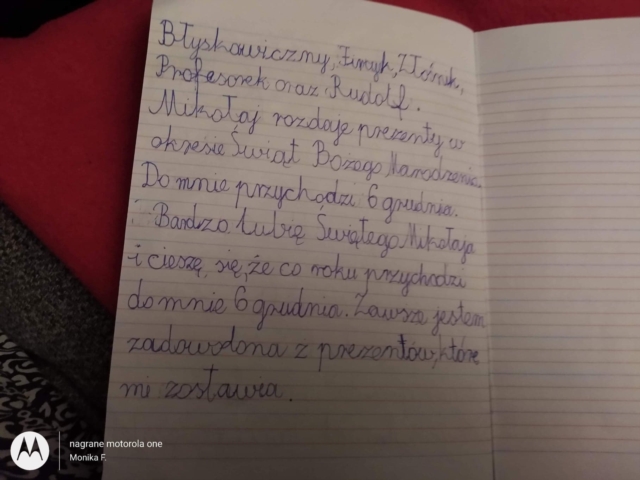 Błyskawiczny, Fircyk, Złośnik,
Profesorek oraz Rudolf.
Mikołaj rozdaje prezenty w
okresie Świąt Bożego Narodzenia.
Do mnie przychodzi 6 grudnia.
Bardzo lubię Świętego Mikołaja
i cieszę się, że co roku przychodzi
do mnie 6 grudnia. Zawsze jestem
zadowolona z prezentów, które
mi zostawia.
nagrane motorola one
Monika F.